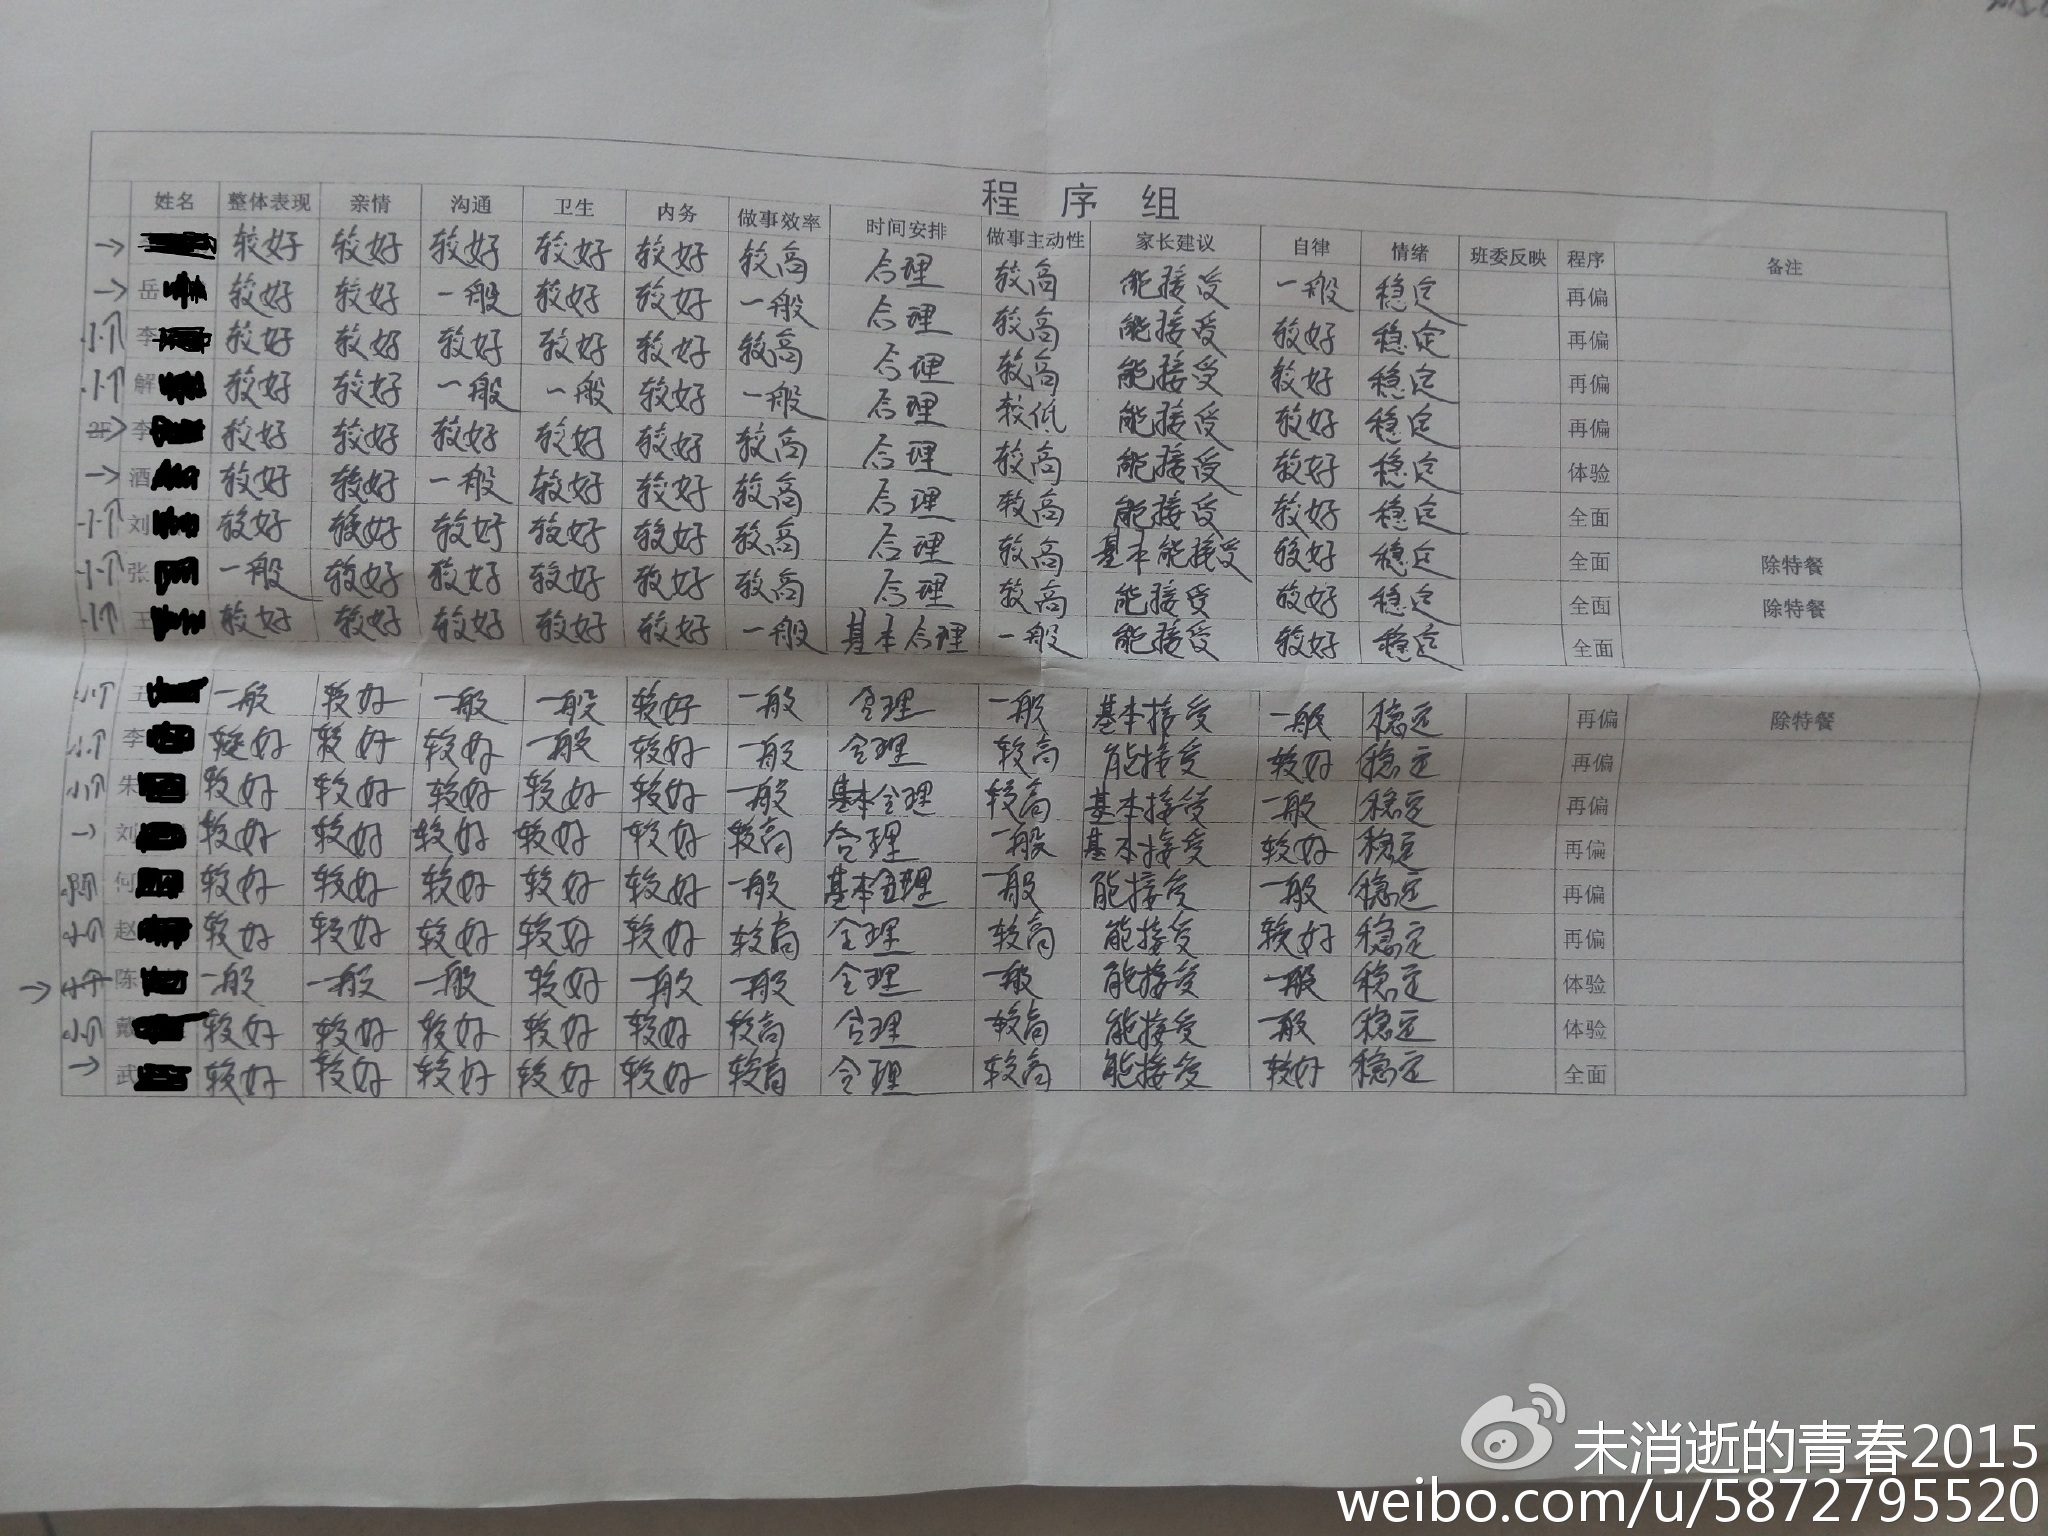 程 序 组
姓名 整体表现 亲情 沟通 卫生 内务 做事效率 时间安排 做事主动性 家长建议 自律 情绪 班委反映 程序 备注
→ 较好 较好 较好 较好 较好 较高 合理 较高 能接受 一般 稳定 再偏
→ 岳 较好 较好 一般 较好 较好 一般 合理 较高 能接受 较好 稳定 再偏
小个 李 较好 较好 较好 较好 较好 较高 合理 较高 能接受 较好 稳定 再偏
小个 解 较好 较好 一般 一般 较好 一般 合理 较低 能接受 较好 稳定 再偏
→ 李 较好 较好 较好 较好 较好 较高 合理 较高 能接受 较好 稳定 体验
→ 酒 较好 较好 一般 较好 较好 较高 合理 较高 能接受 较好 稳定 全面
小个 刘 较好 较好 较好 较好 较好 较高 合理 较高 基本能接受 较好 稳定 全面 除特餐
小个 张 一般 较好 较好 较好 较好 较高 合理 较高 能接受 较好 稳定 全面 除特餐
小个 王 较好 较好 较好 较好 较好 一般 基本合理 一般 能接受 较好 稳定 全面
小个 王 一般 较好 一般 一般 较好 一般 合理 一般 基本接受 一般 稳定 再偏 除特餐
小个 李 较好 较好 较好 一般 较好 一般 合理 较高 能接受 较好 稳定 再偏
小个 朱 较好 较好 较好 较好 较好 一般 基本合理 较高 基本接受 一般 稳定 再偏
→ 刘 较好 较好 较好 较好 较好 较高 合理 一般 基本接受 较好 稳定 再偏
何 较好 较好 较好 较好 较好 一般 基本合理 一般 能接受 一般 稳定 再偏
小个 赵 较好 较好 较好 较好 较好 较高 合理 较高 能接受 较好 稳定 再偏
→ 陈 一般 一般 一般 较好 一般 一般 合理 一般 能接受 一般 稳定 体验
小个 戴 较好 较好 较好 较好 较好 较高 合理 较高 能接受 一般 稳定 体验
→ 武 较好 较好 较好 较好 较好 较高 合理 较高 能接受 较好 稳定 全面
未消逝的青春2015
weibo.com/u/5872795520